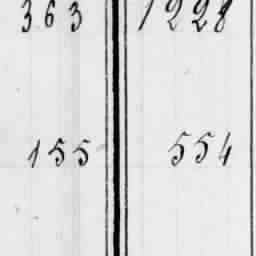 363 1228
155 554